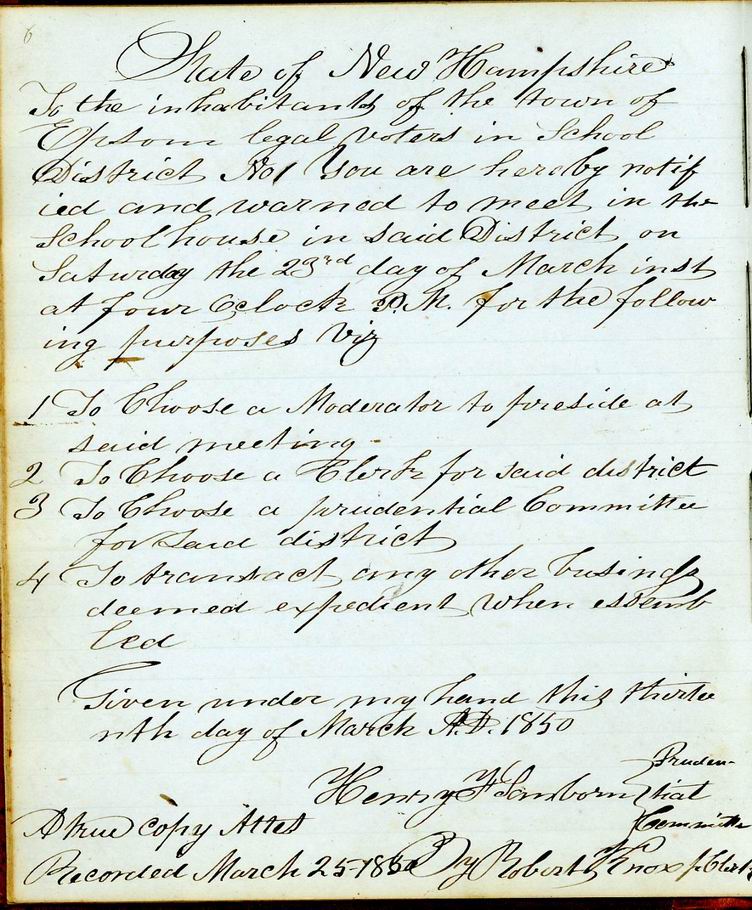 6
State of New Hampshire
To the inhabitants of the town of
Epsom legal voters in School
District No 1 You are hereby notif
ied and warned to meet in the
Schoolhouse in said District on
Saturday the 23rd day of March inst
at four Oclock P.M. for the follow
ing purposes Viz
1 To Choose a Moderator to preside at
said meeting
2 To Choose a Clerk for said district
3 To Choose a prudential Committee
for said district
4 To transact any other business
deemed expedient when assemb
led
Given under my hand this thirte
nth day of March A.D. 1850
Henry F Sanborn } Pruden-
tial
Committe
A true copy Attes
Recorded March 25-1850 By Robert Knox Clerk